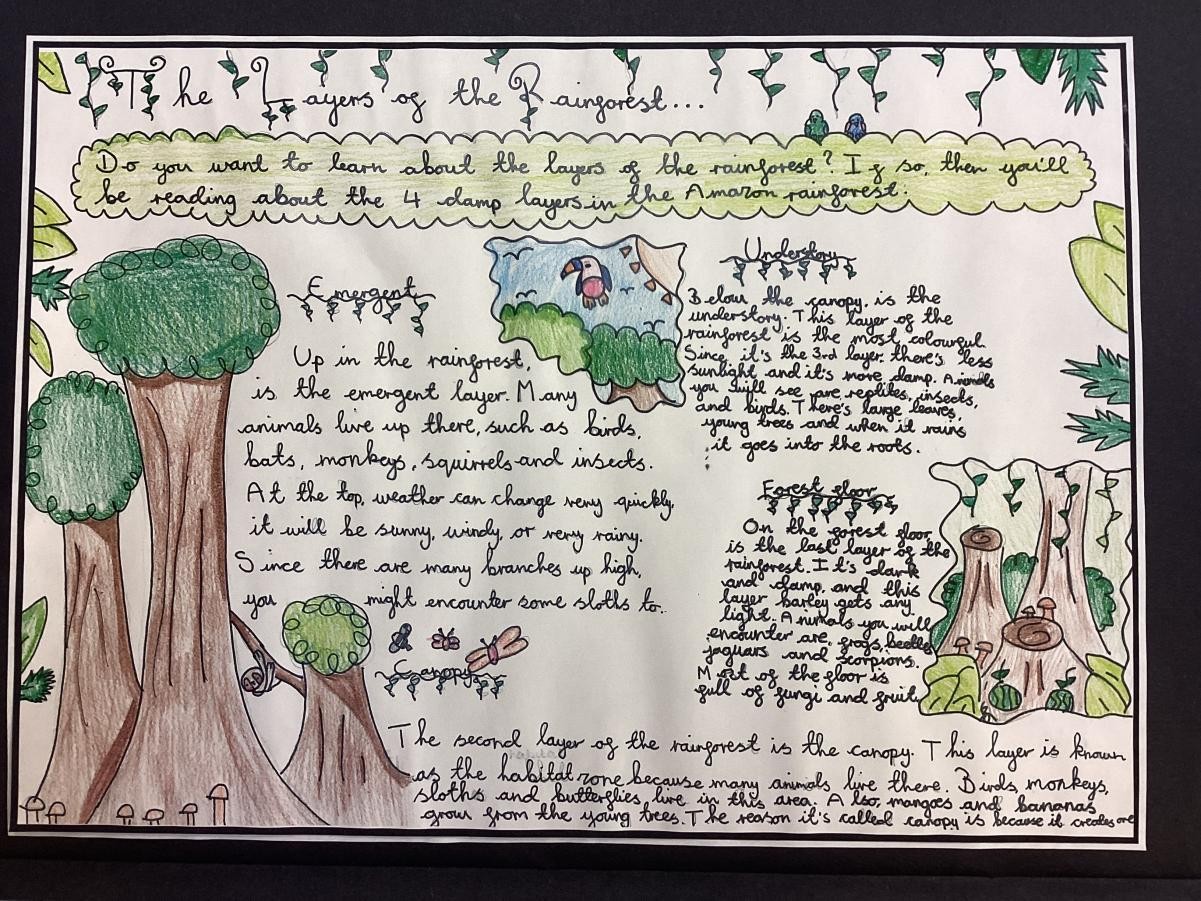 The Layers of the Rainforest...
Do you want to learn about the layers of the rainforest? If so, then you'll
be reading about the 4 damp layers in the Amazon rainforest.
Emergent
Up in the rainforest,
is the emergent layer. Many
animals live up there, such as birds,
bats, monkeys, squirrels and insects.
At the top, weather can change very quickly,
it will be sunny, windy, or very rainy.
Since there are many branches up high,
you might encounter some sloths to.
Canopy
The second layer of the rainforest is the canopy. This layer is known
as the habitat zone because many animals live there. Birds, monkeys,
sloths and butterflies live in this area. Also, mangoes and bananas
grow from the young trees. The reason it's called canopy is because it creates
Understory
Below the canopy, is the
understory. This layer of the
rainforest is the most colourful.
Since, it's the 3rd layer, there's less
sunlight and it's more damp. Animals
you will see are reptiles, insects,
and birds. There's large leaves,
young trees and when it rains
it goes into the roots.
Forest floor
On the forest floor,
is the last layer of the
rainforest. It's dark
and damp, and this
layer barley gets any
light. Animals you will
encounter are, frogs, beetles
jaguars and scorpions.
Most of the floor is
full of fungi and fruit.